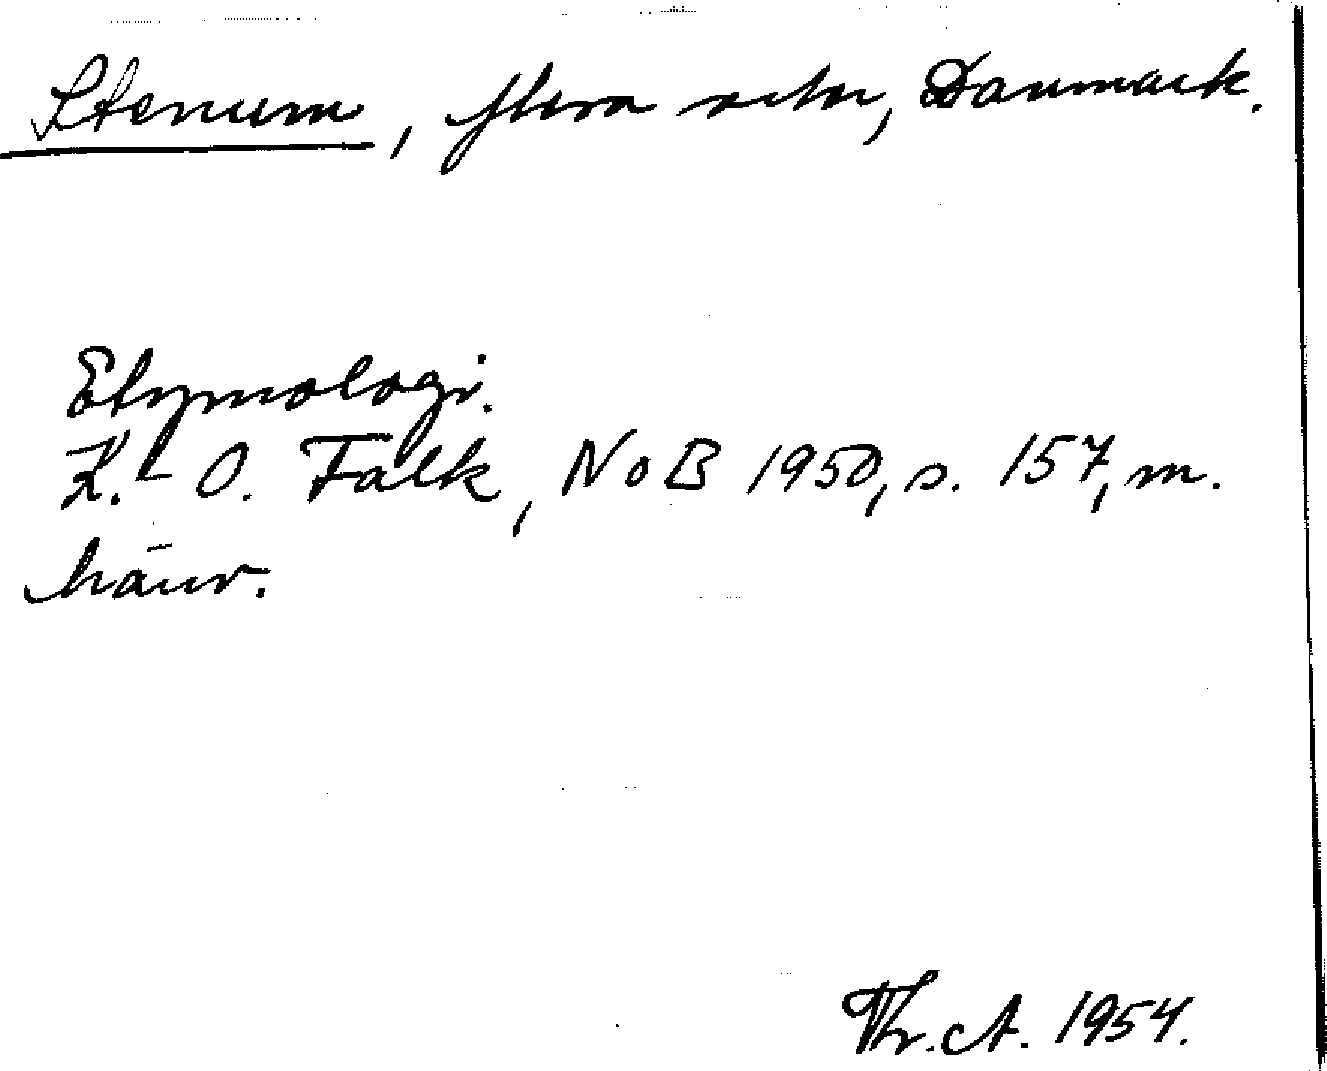 Stenum, flera orter, Danmark.
Etymologi.
K.-O. Falk, NoB 1950, s. 157, m.
hänv.
Th. A. 1954.